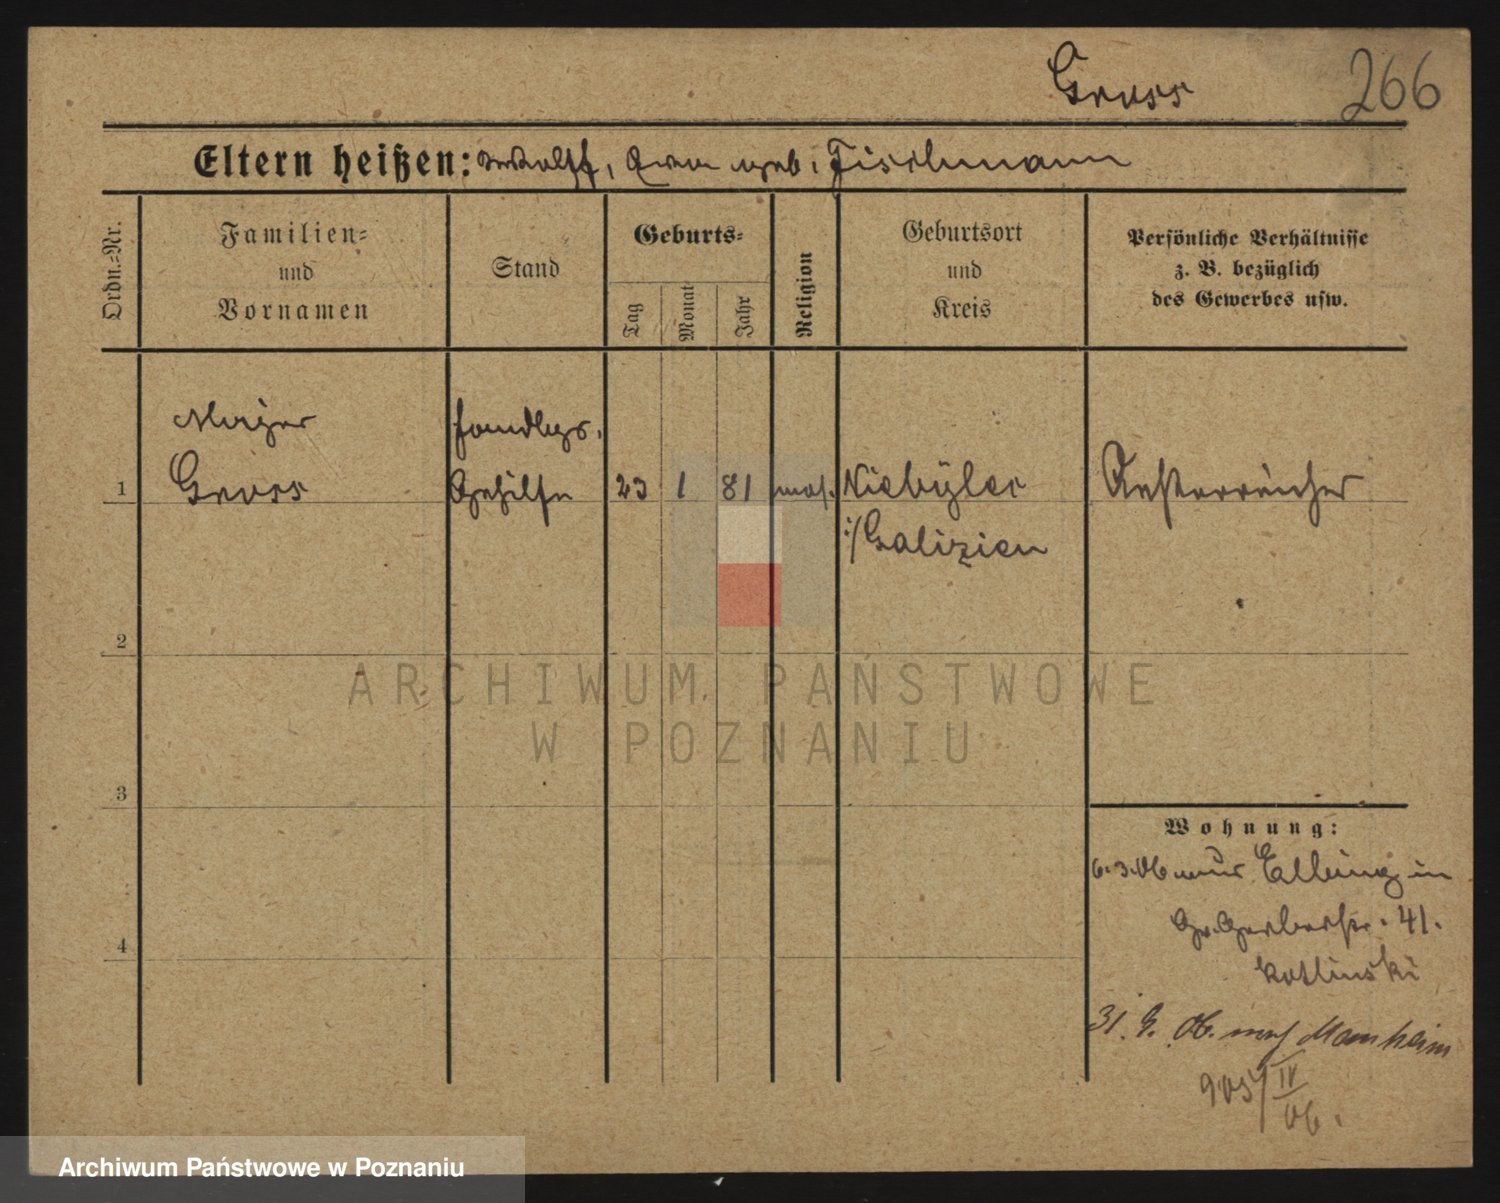 Gross 266
Eltern heißen: Wolff, geb. Fischmann
Ordn.-Nr.
Familien-
und
Vornamen
Stand
Geburts-
Tag
Monat
Jahr
Religion
Geburtsort
und
Kreis
Persönliche Verhältnisse
z. B. bezüglich
des Gewerbes usw.
Majer Handlgs.
1 Gross Gehilfe 23 1 81 mos. Oesterreicher
i/Galizien
2
ARCHIWUM PAŃSTWOWE
W POZNANIU
3
Wohnung:
6.3.06 aus Elbing in
Gr. Gerberstr. 41.
Kotlinski
4
31. 06. nach Mannheim
905/IV
06.
Archiwum Państwowe w Poznaniu